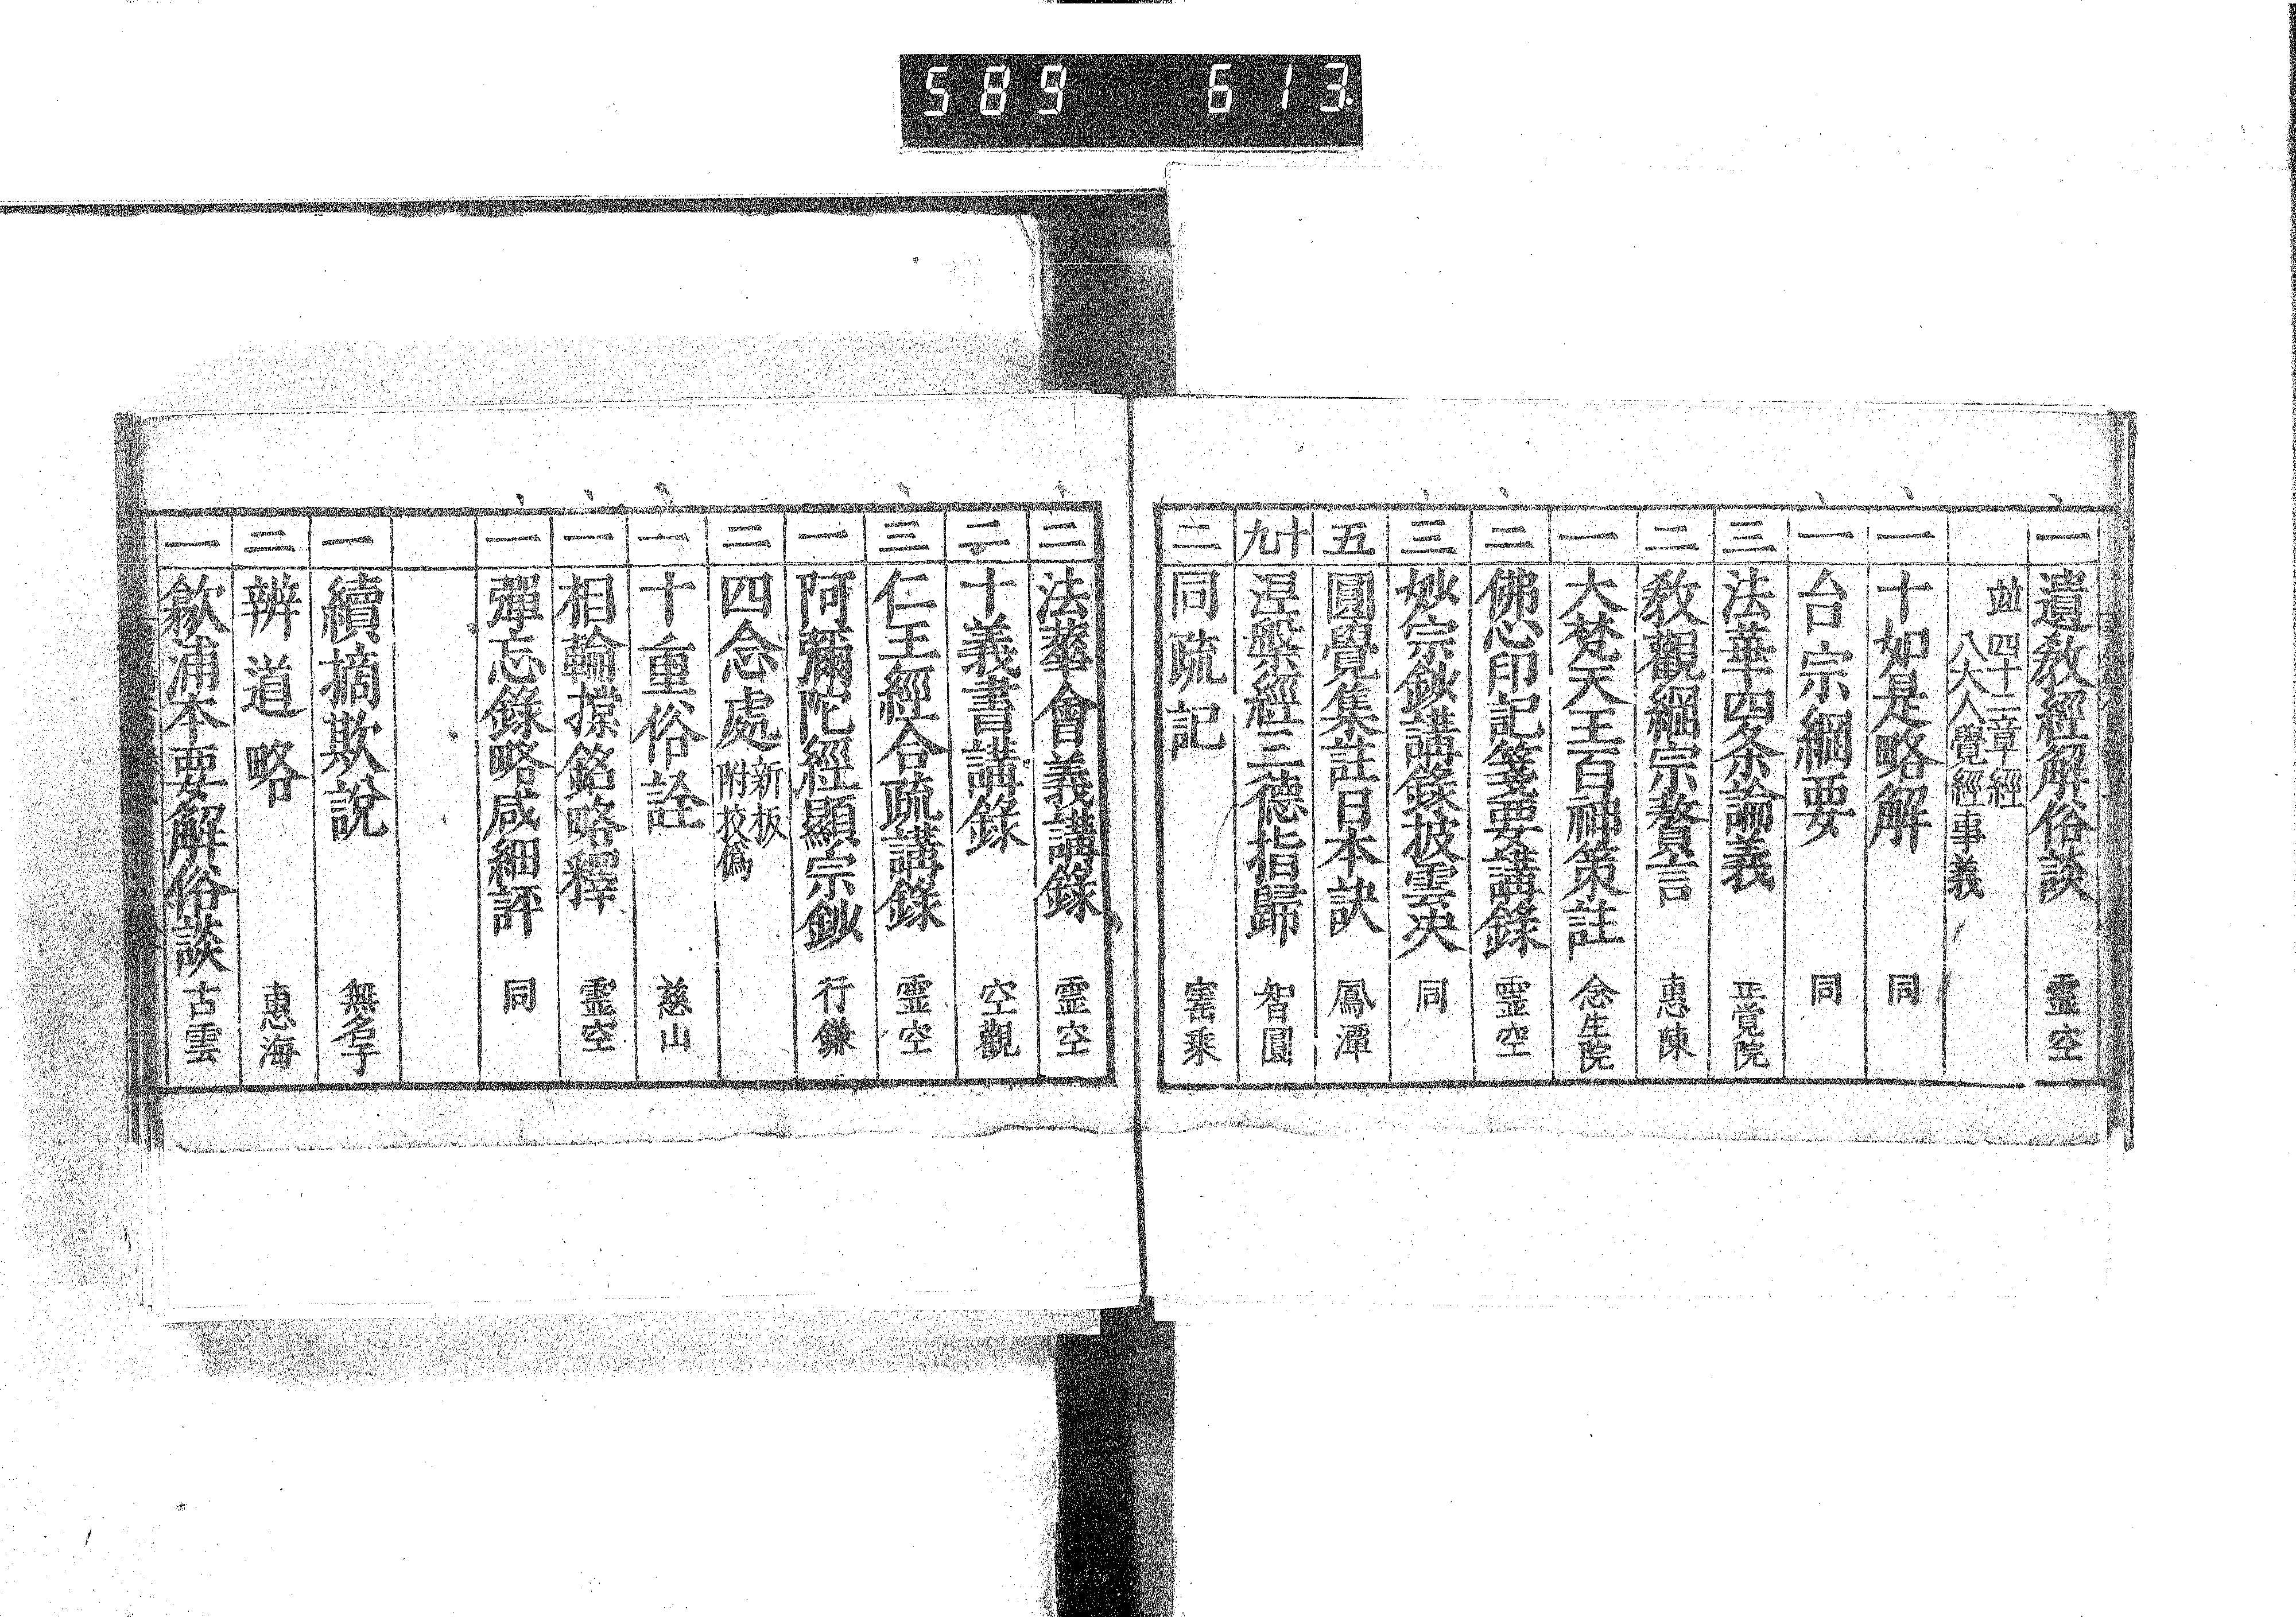 589 613
一 遺教經解俗談 霊空
並 四十二章經 八大人覺經 事義
一 十如是略解 同
一 台宗綱要 同
三 法華四条論義 正覚院
二 教觀綱宗贅言 惠陳
一 大梵天王百神策註 念生院
三 佛心印記箋要講錄 霊空
三 妙宗鈔講錄披雲決 同
五 圓覺集註日本訣 鳳潭
十九 涅槃經三德指歸 智圓
二 同疏記 宻乘
二 法華會義講錄 霊空
二 十義書講錄 空觀
三 仁王經合疏講錄 霊空
一 阿彌陀經顯宗鈔 行鎌
二 四念處 新板 附技僞
一 十重俗詮 慈山
一 相輪橖銘略釋 霊空
一 彈忘錄略咸細評 同
一 續摘欺說 無名子
二 辨道略 惠海
一 歙浦本要解俗談 古雲